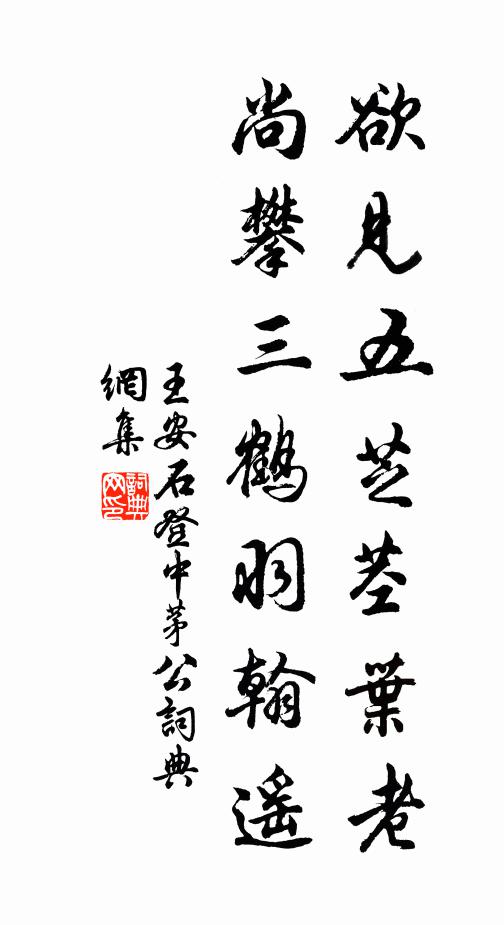 欲見五芝莖葉老
尚攀三鶴羽翰遥
王安石登中茅公詞典
網集
詞典
网印